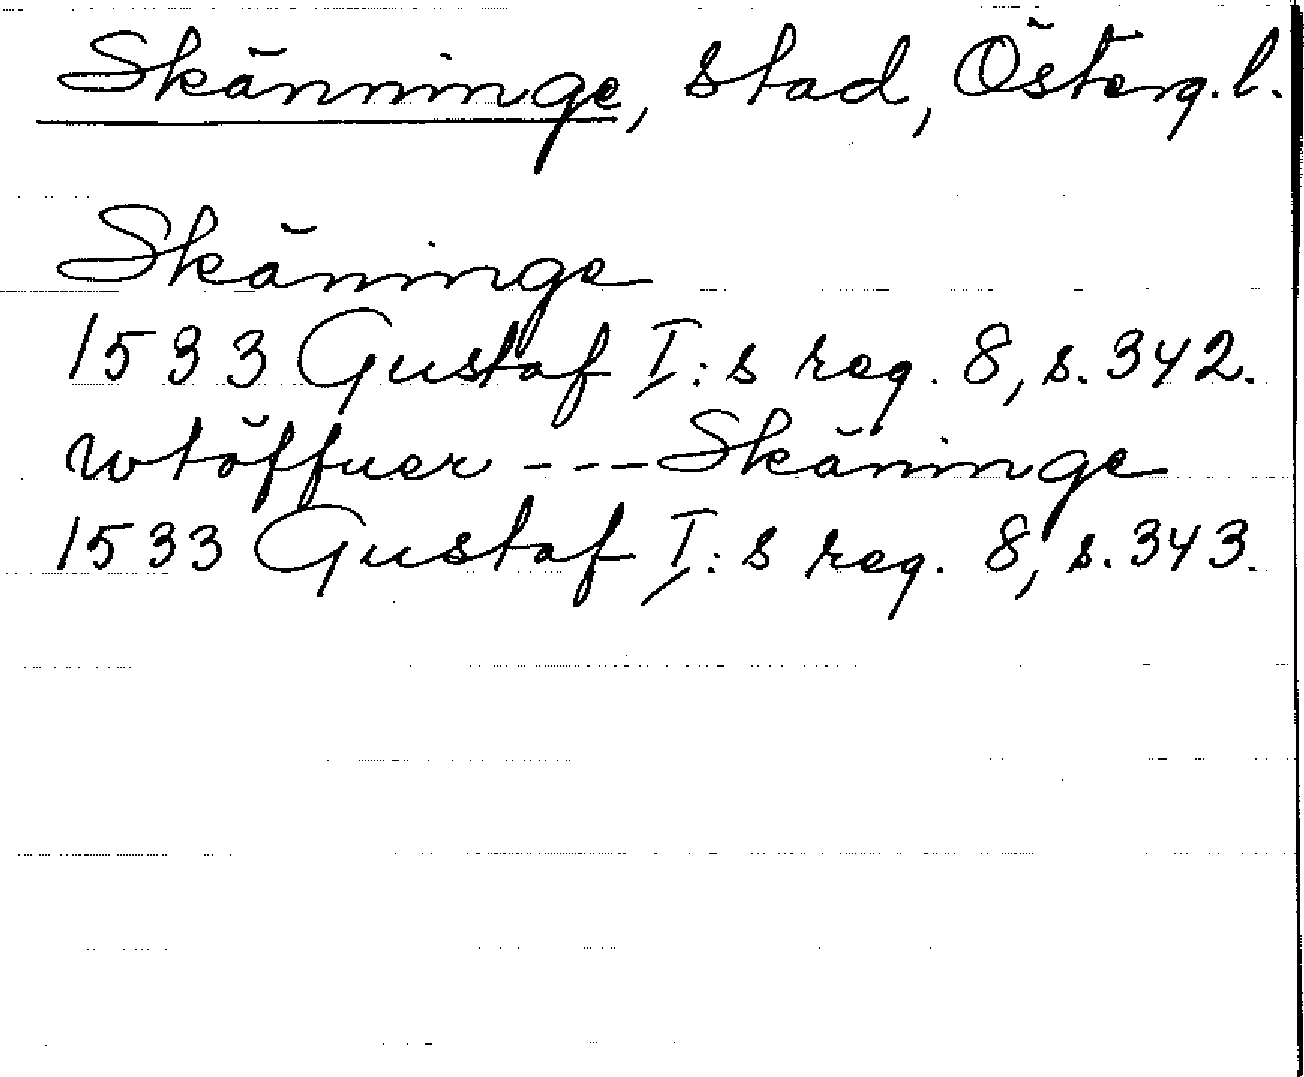 Skänninge, stad, Österg. l.
Skäninge
1533 Gustaf I:s reg. 8, s. 342.
wtöffuer --- Skäninge
1533 Gustaf I:s reg. 8, s. 343.